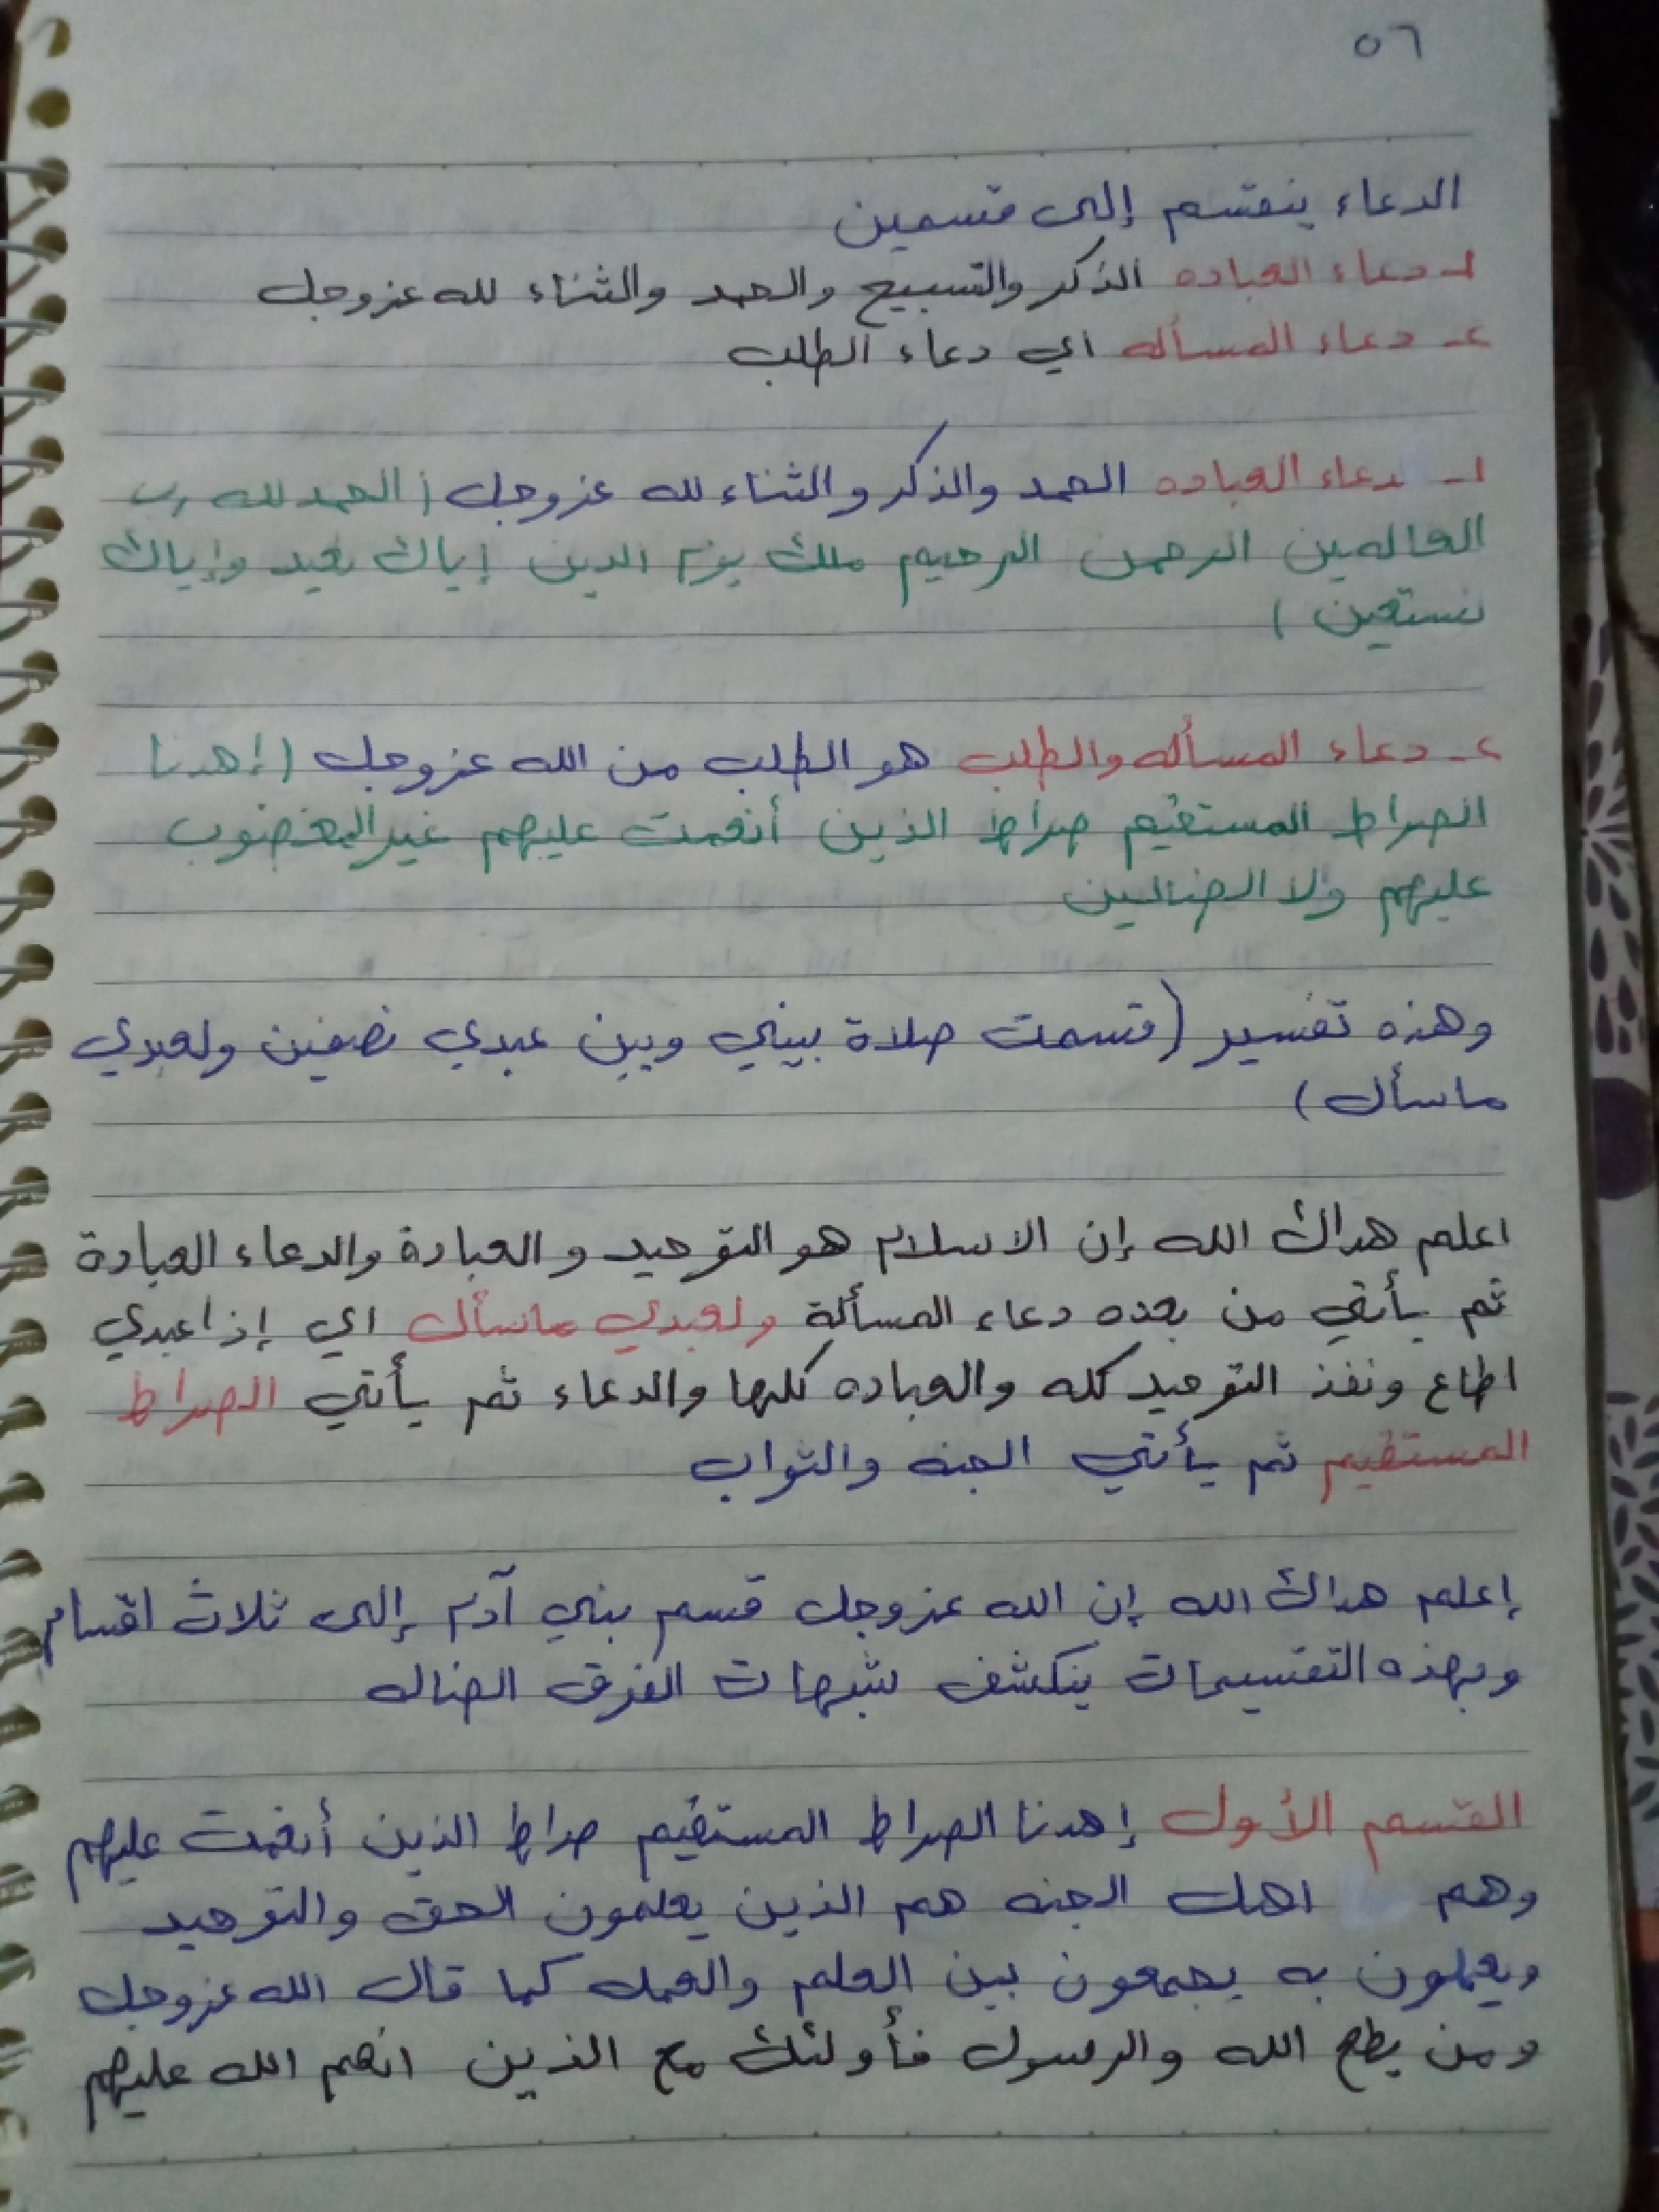 ٥٦
الدعاء ينقسم إلى قسمين
١- دعاء العباده الذكر والتسبيح والحمد والثناء لله عزوجل
٢- دعاء المسأله اي دعاء الطلب
١- دعاء العباده الحمد والذكر والثناء لله عزوجل (الحمد لله رب
العالمين الرحمن الرحيم ملك يوم الدين إياك نعبد وإياك
نستعين)
٢- دعاء المسأله والطلب هو الطلب من الله عزوجل (إهدنا
الصراط المستقيم صراط الذين أنعمت عليهم غير المغضوب
عليهم ولا الضالين
وهذه تفسير (قسمت صلاة بيني وبين عبدي نصفين ولعبدي
ماسأل)
اعلم هداك الله إن الاسلام هو التوحيد والعبادة والدعاء العبادة
ثم يأتي من بعده دعاء المسألة ولعبدي ماسأل اي إذا عبدي
اطاع ونفذ التوحيد كله والعباده كلها والدعاء ثم يأتي الصراط
المستقيم ثم يأتي الجنه والثواب
إعلم هداك الله إن الله عزوجل قسم بني آدم إلى ثلاث اقسام
وبهذه التقسيمات ينكشف شبهات الفرق الضاله
القسم الأول إهدنا الصراط المستقيم صراط الذين أنعمت عليهم
وهم اهل الجنه هم الذين يعلمون الحق والتوحيد
ويعملون به يجمعون بين العلم والعمل كما قال الله عزوجل
ومن يطع الله والرسول فأولئك مع الذين انعم الله عليهم